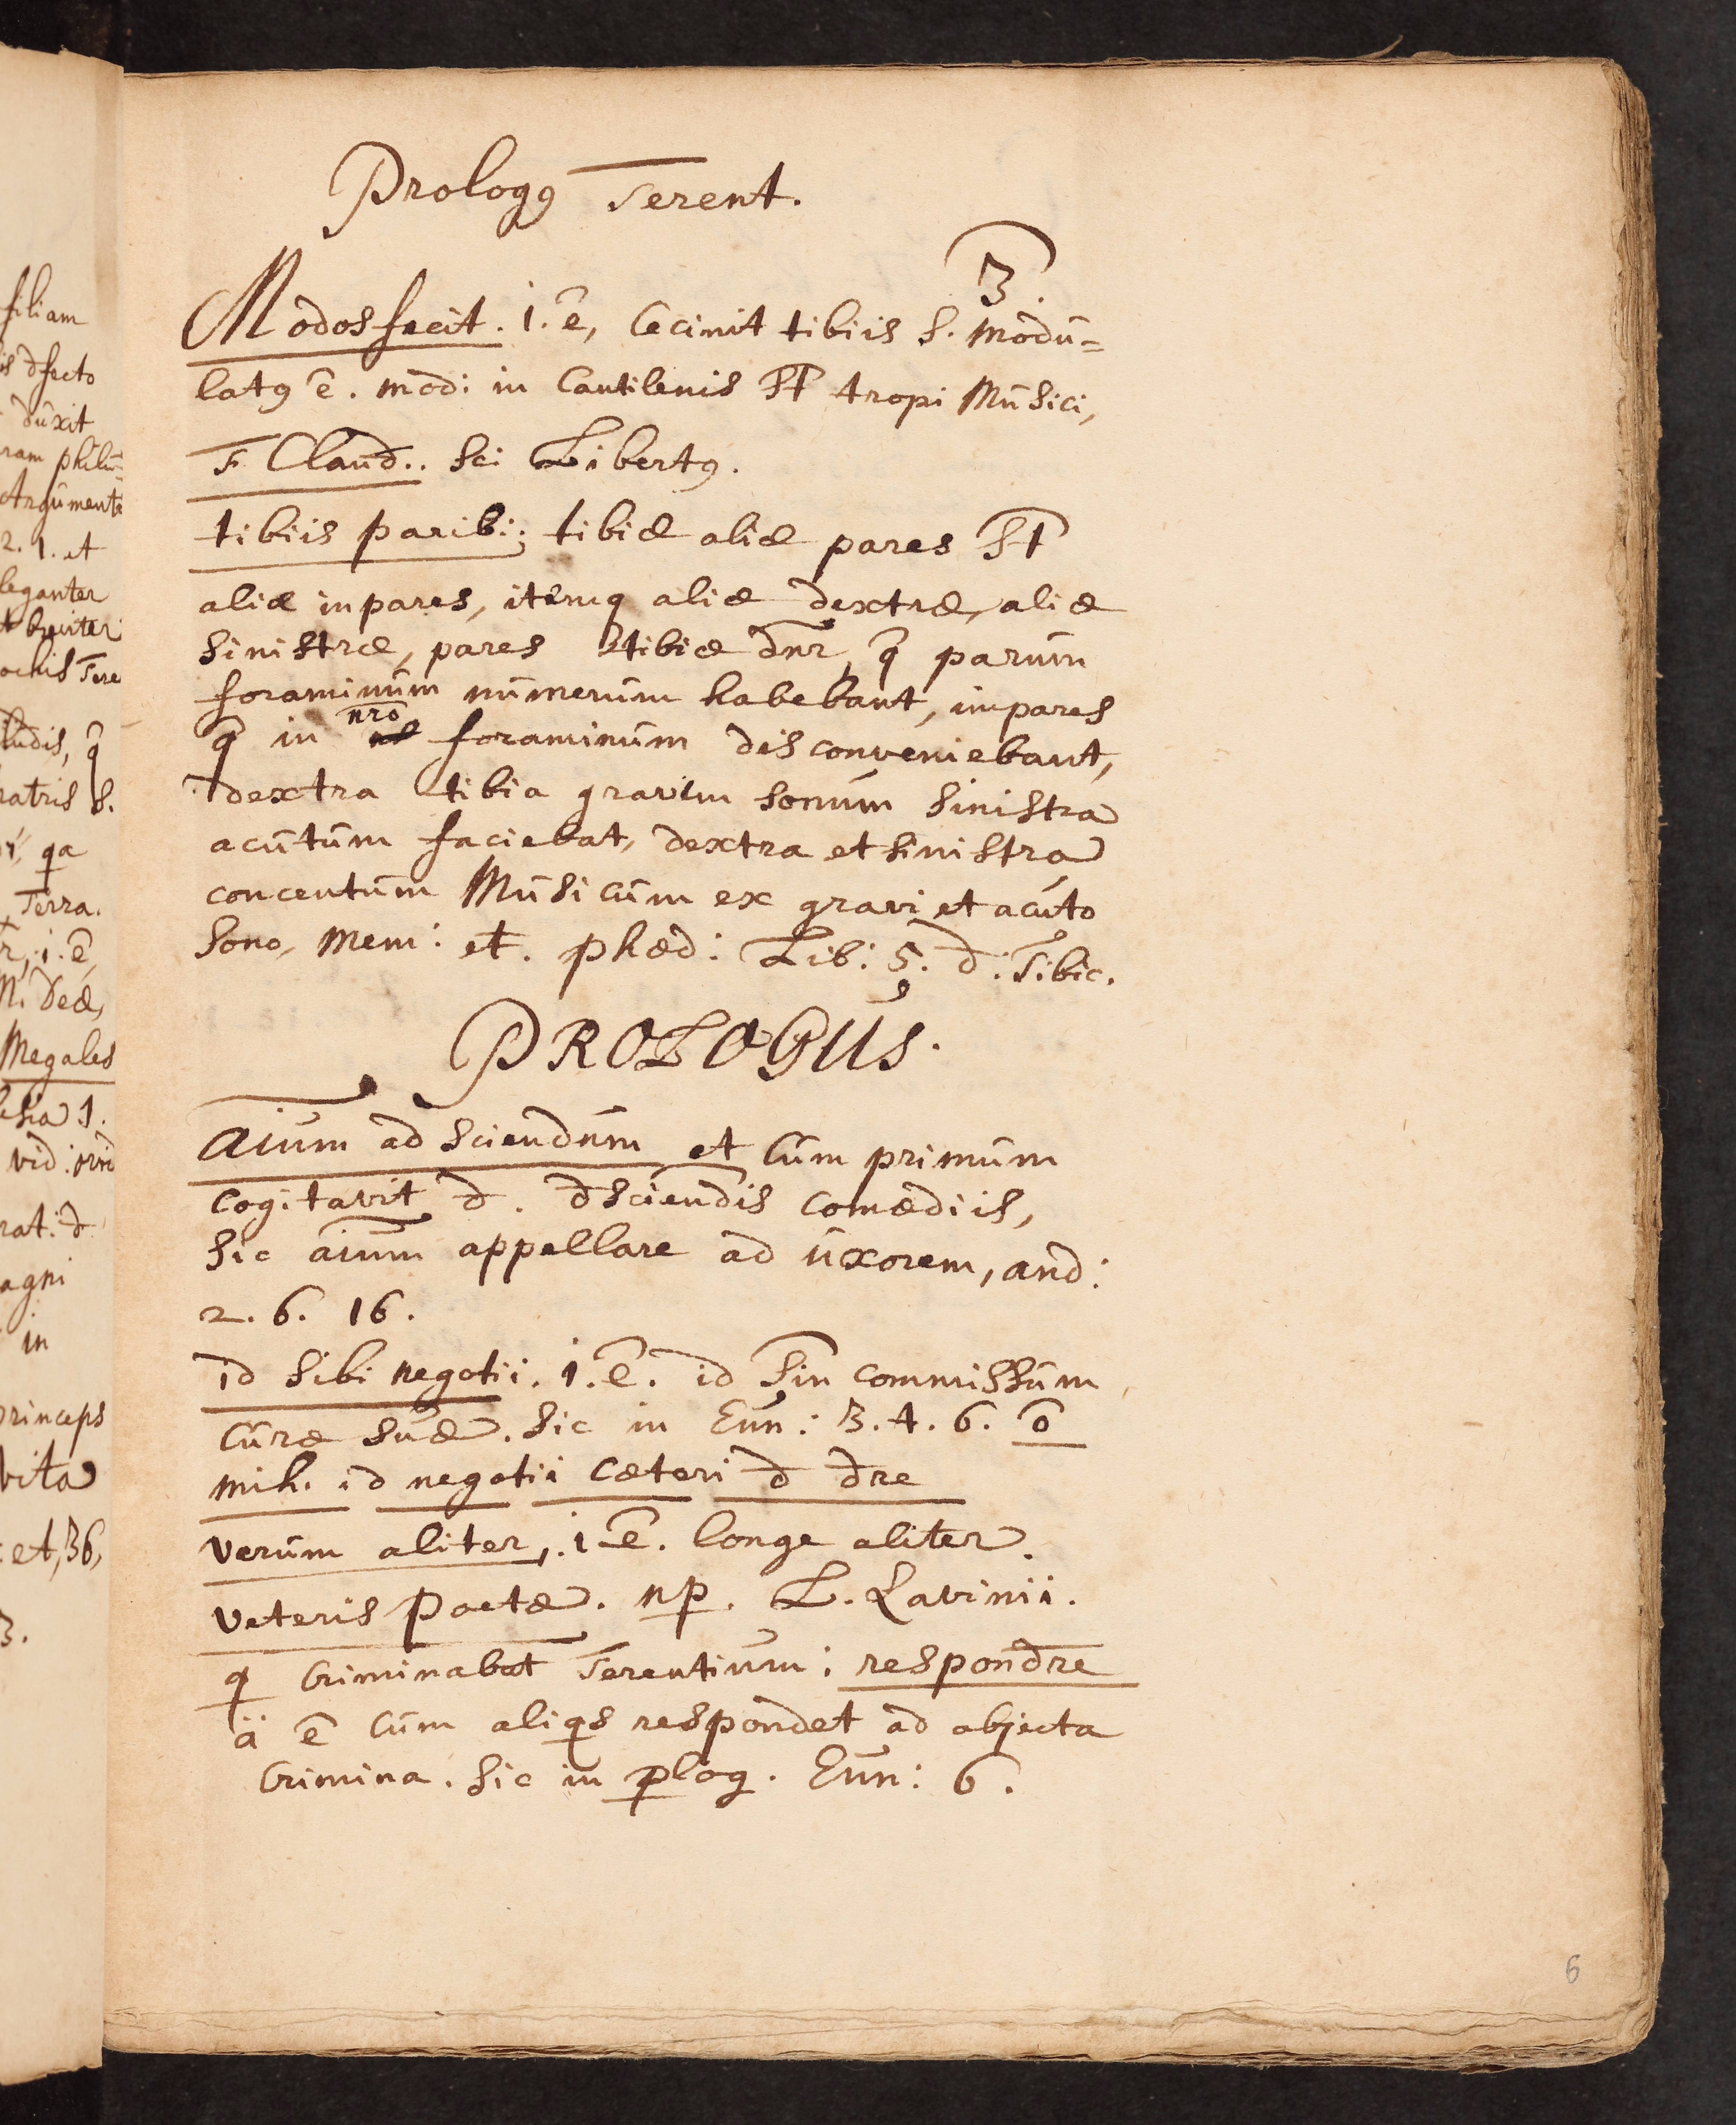 Prologꝰ Terent.
3.
Modos fecit. i. ē, Cecinit tibiis s. modu=
latꝰ ē. modi in Cantilenis S̄t tropi Musici,
F. Claud.. sci Libertꝰ.
tibiis parib:; tibiæ aliæ pares S̄t
aliæ inpares, itemq aliæ dextræ, aliæ
sinistræ, pares tibiæ dnr, q̄ parum
foraminum numerum habebant, impares
q̄ in nro foraminum disconveniebant,
dextra tibia gravem sonum sinistra
acutum faciebat, dextra et sinistra
concentum Musicum ex gravi et acuto
sono, mem: et. phæd: Lib: 5. d. Tibic.
PROLOGUS.
Aīum ad sciendum et Cum primum
cogitavit d. dsciendis comædiis,
sic aīum appellare ad uxorem, and:
2. 6. 16.
id sibi negotii. i. ē. id Sin commissum
curæ suæ. sic in Eun: 3. 4. 6. ō
mih. id negotii cæteri d dre
verum aliter,. i ē. longe aliter.
veteris Poetæ. np. L. Lavinii.
q Criminabat Terentium: respondre
ä ē cum aliqs respondet ad objecta
Crimina. sic in plog. Eun: 6.
6
filiam
is dfecto
duxit
ram philu=
Argumenta
2. 1. et
leganter
breviter
ochis Tere
ludis, q̄
ratris s.
qa
Terra.
r, i. ē,
n. Deæ,
Megales
lesia 1.
vid: ovid
rat: d
agni
in
princeps
vita
et, 36,
3.